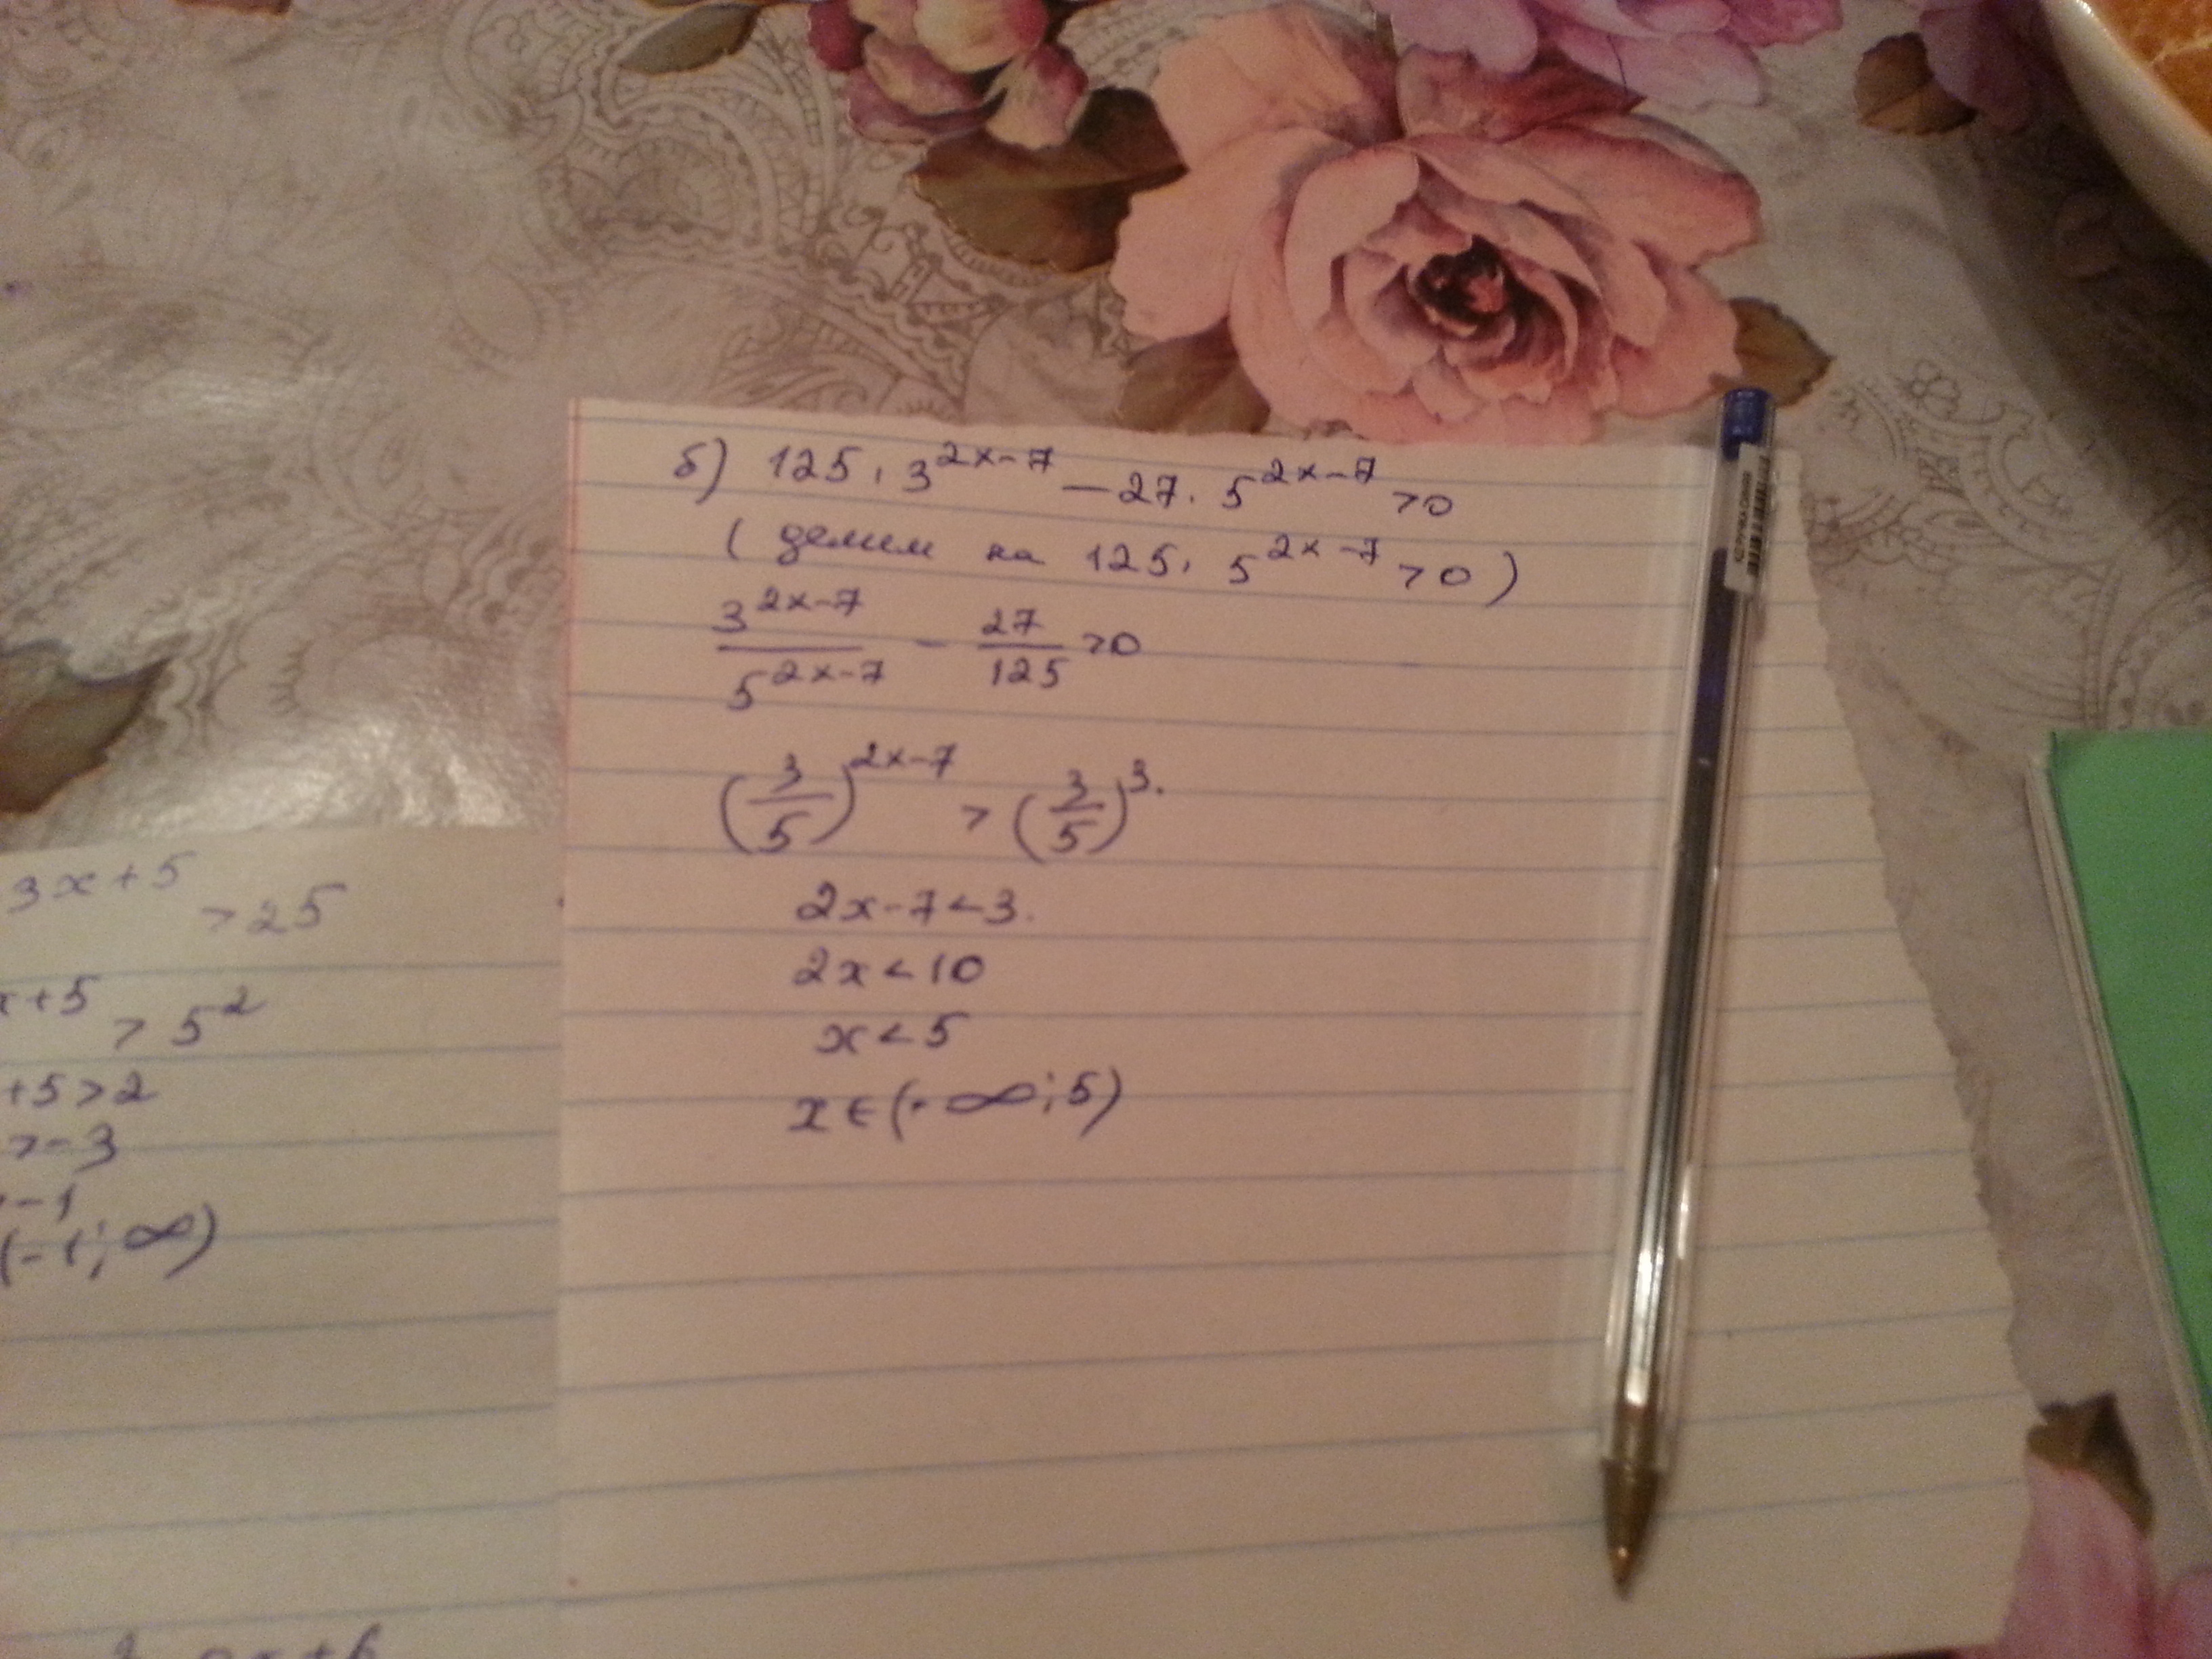 3x+5 > 25
x+5 > 5^2
+5>2
>-3
-1
(-1; ∞)
б) 125 · 3^{2x-7} - 27 · 5^{2x-7} >0
( делим на 125 · 5^{2x-7} >0 )
\frac{3^{2x-7}}{5^{2x-7}} - \frac{27}{125} >0
(\frac{3}{5})^{2x-7} > (\frac{3}{5})^{3}.
2x-7<3.
2x<10
x<5
x∈(-∞;5)